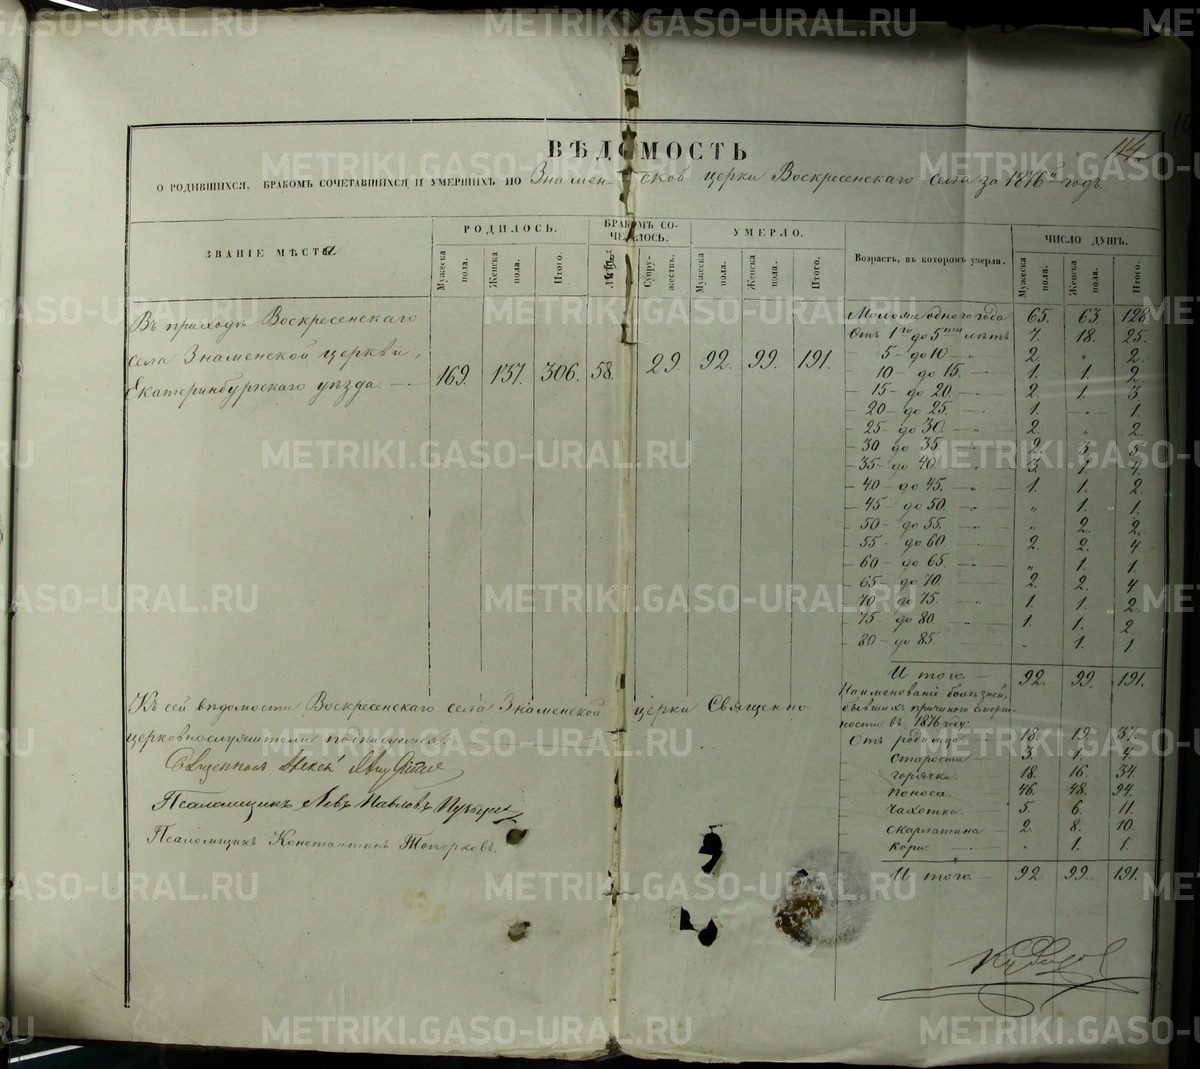 ВѢДОМОСТЬ
114
О РОДИВШИХСЯ, БРАКОМЪ СОЧЕТАВШИХСЯ И УМЕРШИХЪ ПО Знаменской церкви Воскресенскаго села за 1876й годъ.
ЗВАНІЕ МѢСТА
РОДИЛОСЬ.
Мужеска пола.
Женска пола.
Итого.
БРАКОМЪ СО-
ЧЕТАЛОСЬ.
Супружествъ.
УМЕРЛО.
Мужеска пола.
Женска пола.
Итого.
Возрастъ, въ которомъ умерли.
ЧИСЛО ДУШЪ.
Мужеска пола.
Женска пола.
Итого.
Въ приходѣ Воскресенскаго
села Знаменской церкви,
Екатеринбургскаго уѣзда. —
169. 137. 306. 58. 29 92. 99. 191.
Моложе одного года 65. 63. 128
Отъ 1го до 5ти лѣтъ 7. 18. 25.
5 - до 10 — 2. „ 2.
10 до 15. — 1. 1. 2
15 - до 20. — 2. 1. 3.
20 - до 25. — 1. — 1.
25 - до 30. — 2. „ 2.
30 до 35. — 2. 3. 5
35 - до 40. — 3. 1. 4.
40 - до 45. — 1. 1. 2.
45 - до 50. — „ 1. 1.
50 - до 55. — „ 2. 2.
55 - до 60. — 2. 2. 4
60 - до 65. — „ 1. 1.
65 - до 70. — 2. 2. 4
70 до 75. — 1. 1. 2.
75 - до 80. — 1. 1. 2
80 - до 85. „ 1. 1.
Итого. — 92. 99. 191.
Наименованіе болѣзней,
бывшихъ причиною смерт-
ности въ 1876 году:
Отъ родимца. — 18. 19. 37.
старости 3. 1. 4.
горячки. 18. 16. 34.
поноса. 46. 48. 94.
чахотки. 5. 6. 11.
скарлатина 2. 8. 10.
кори. — „ 1. 1.
Итого. — 92. 99. 191.
Къ сей вѣдомости Воскресенскаго села Знаменской церкви Священно
церковнослужители подписуемся:
Священникъ Алексѣй
Псаломщикъ Левъ Павловъ
Псаломщикъ Константинъ Топорковъ.
METRIKI.GASO-URAL.RU